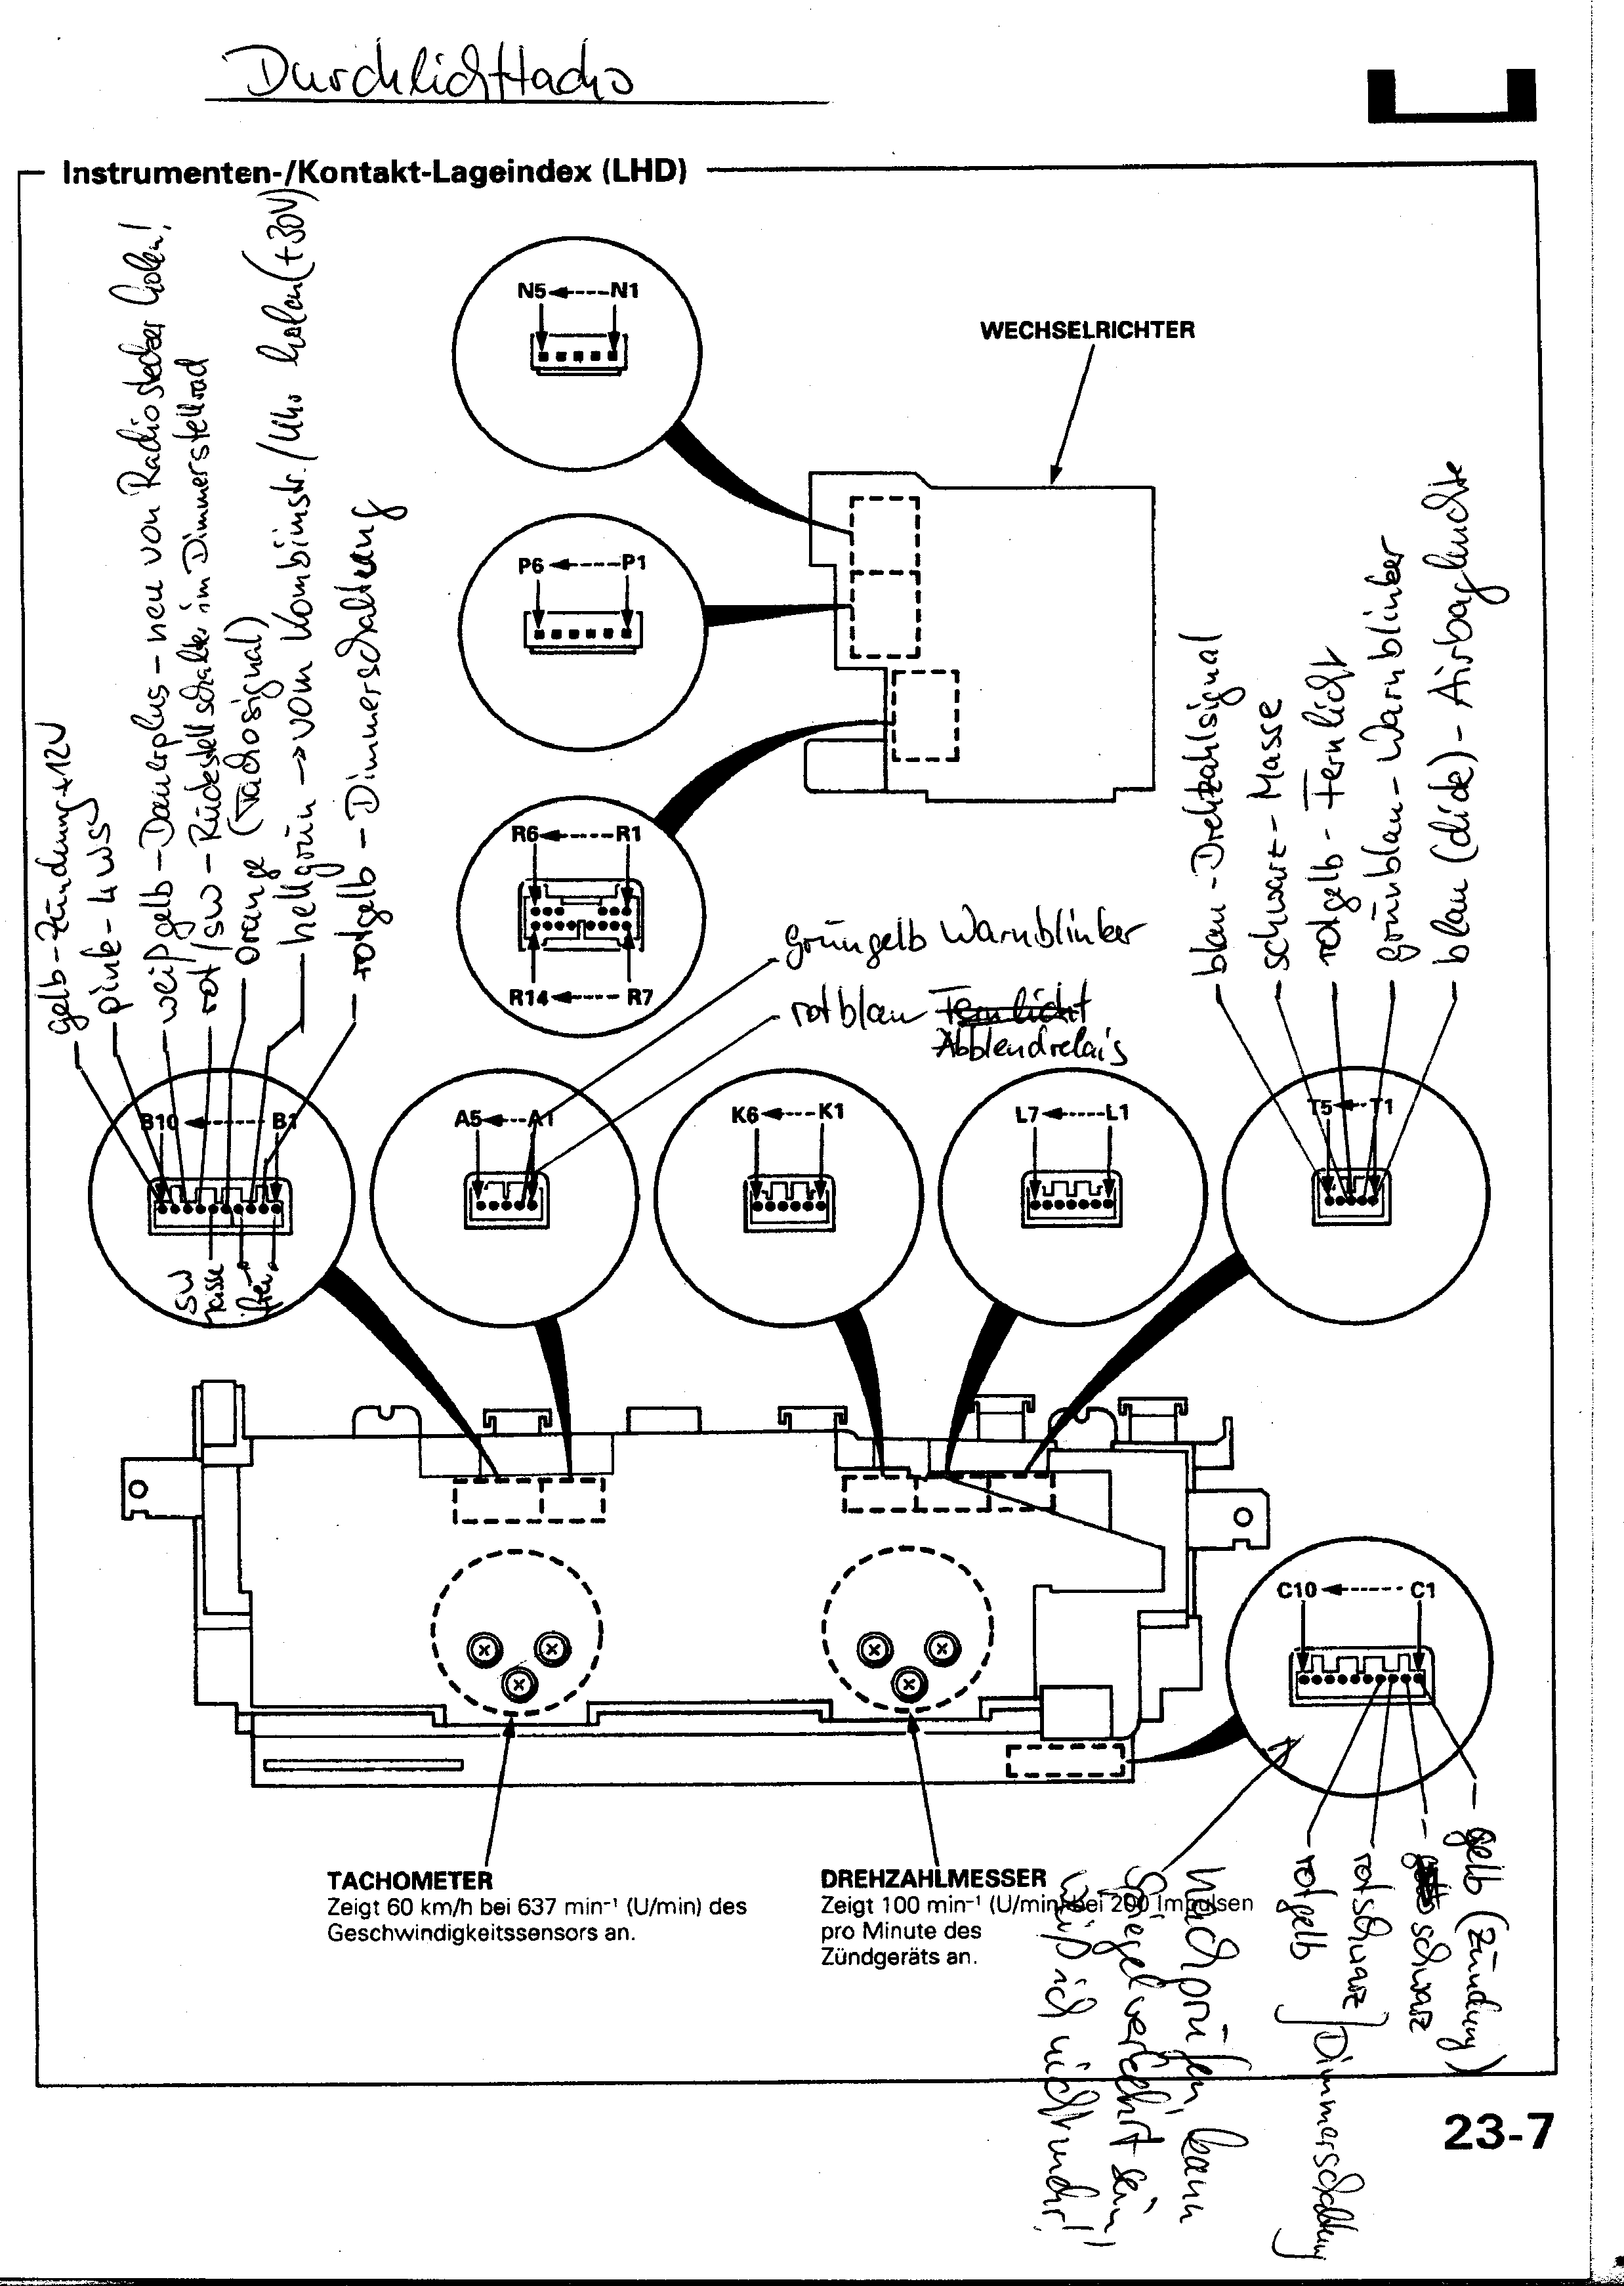 Durchlichttacho
Instrumenten-/Kontakt-Lageindex (LHD)
gelb-Zündung+12V
pink - 4WS
weißgelb - Dauerplus - neu von Radiostecker holen!
rot/sw - Rückstellschalter im Dimmerstellrad
orange (Tachosignal)
hellgrün → vom Kombiinstr./Uhr holen (+30V)
rotgelb - Dimmerschaltung
N5 N1
WECHSELRICHTER
P6 P1
R6 R1
R14 R7
grüngelb Warnblinker
rotblau Fernlicht
Abblendrelais
blau - Drehzahlsignal
schwarz - Masse
rotgelb - Fernlicht
grünblau - Warnblinker
blau (dick) - Airbagleuchte
B10 B1
A5 A1
K6 K1
L7 L1
T5 T1
sw
Masse
C10 C1
TACHOMETER
Zeigt 60 km/h bei 637 min⁻¹ (U/min) des
Geschwindigkeitssensors an.
DREHZAHLMESSER
Zeigt 100 min⁻¹ (U/min) bei 200 Impulsen
pro Minute des
Zündgeräts an.
nachprüfen, kann
Spiegelverkehrt sein,
weiß ich nicht mehr!
rotgelb
rotschwarz
Dimmerschaltung
schwarz
gelb (Zündung)
23-7